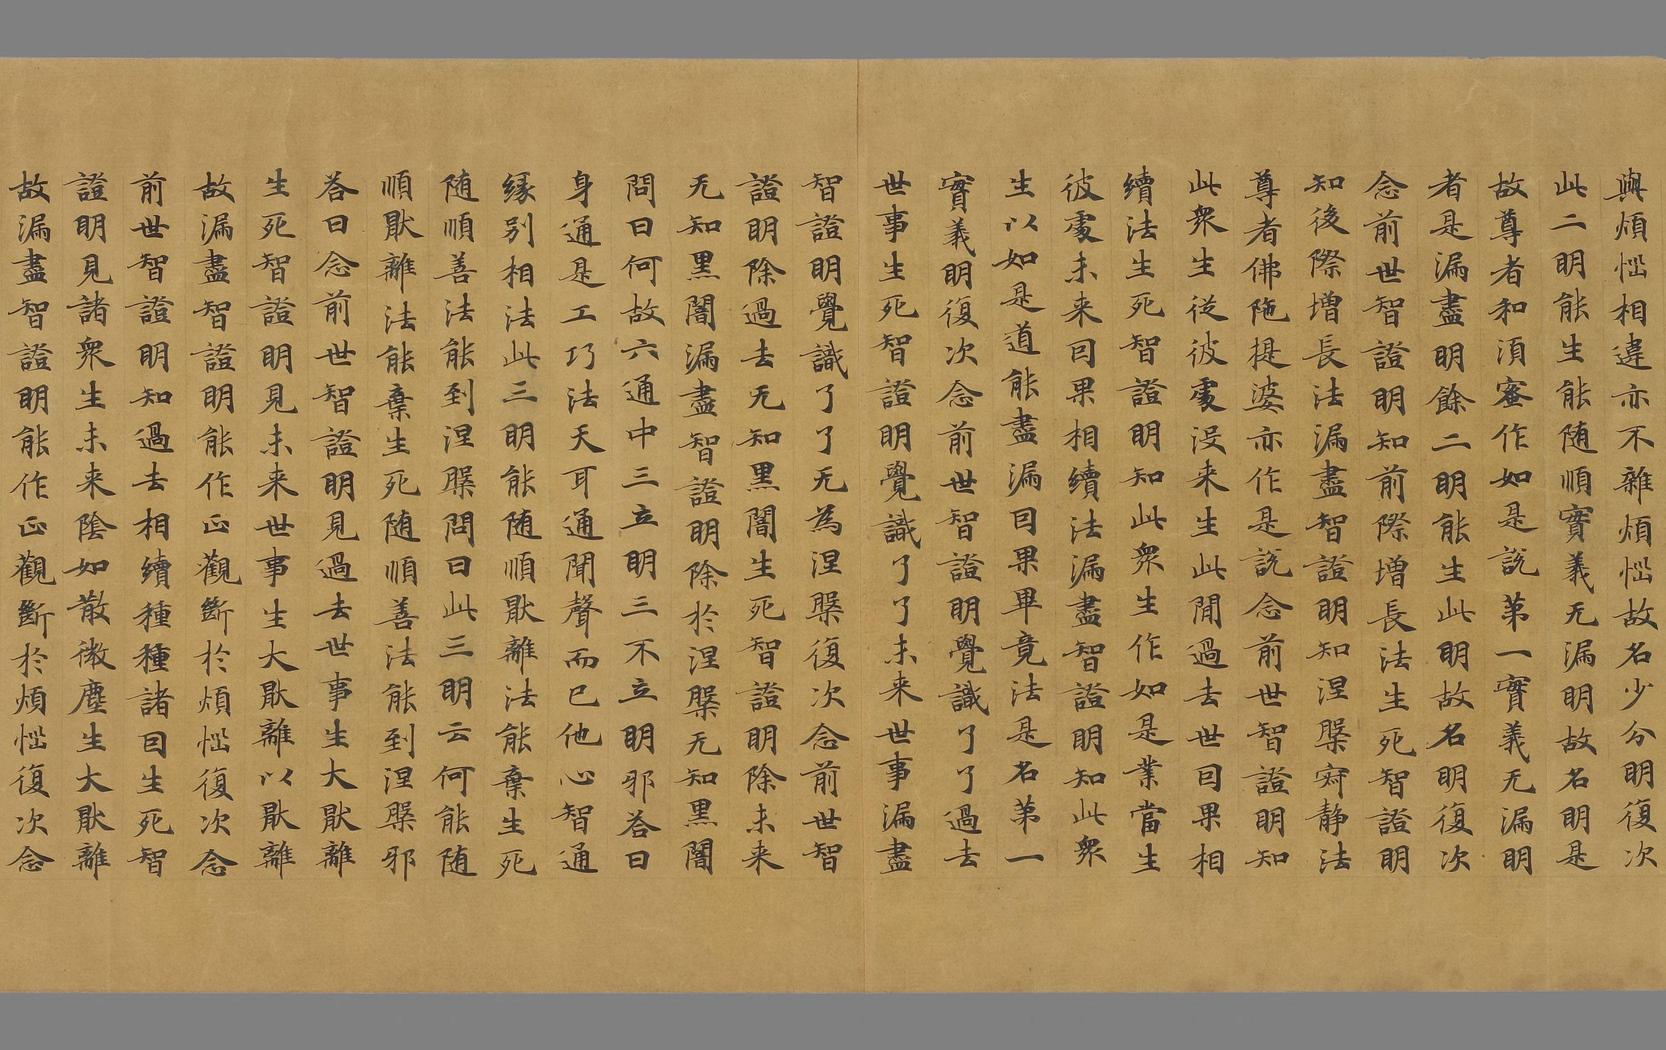 與煩惱相違亦不雜煩惱故名少分明復次
此二明能生能随順實義无漏明故名明是
故尊者和須蜜作如是説第一實義无漏明
者是漏盡明餘二明能生此明故名明復次
念前世智證明知前際增長法生死智證明
知後際增長法漏盡智證明知涅槃寂静法
尊者佛陁提婆亦作是説念前世智證明知
此衆生從彼䖏没来生此間過去世因果相
續法生死智證明知此衆生作如是業當生
彼䖏未来因果相續法漏盡智證明知此衆
生以如是道能盡漏因果畢竟法是名第一
實義明復次念前世智證明覺識了了過去
世事生死智證明覺識了了未来世事漏盡
智證明覺識了了无為涅槃復次念前世智
證明除過去无知黑闇生死智證明除未来
无知黑闇漏盡智證明除於涅槃无知黑闇
問曰何故六通中三立明三不立明邪荅曰
身通是工巧法天耳通聞聲而已他心智通
緣别相法此三明能随順猒離法能棄生死
随順善法能到涅槃問曰此三明云何能随
順猒離法能棄生死随順善法能到涅槃邪
荅曰念前世智證明見過去世事生大猒離
生死智證明見未来世事生大猒離以猒離
故漏盡智證明能作正觀斷於煩惱復次念
前世智證明知過去相續種種諸因生死智
證明見諸衆生未来陰如散微塵生大猒離
故漏盡智證明能作正觀斷於煩惱復次念